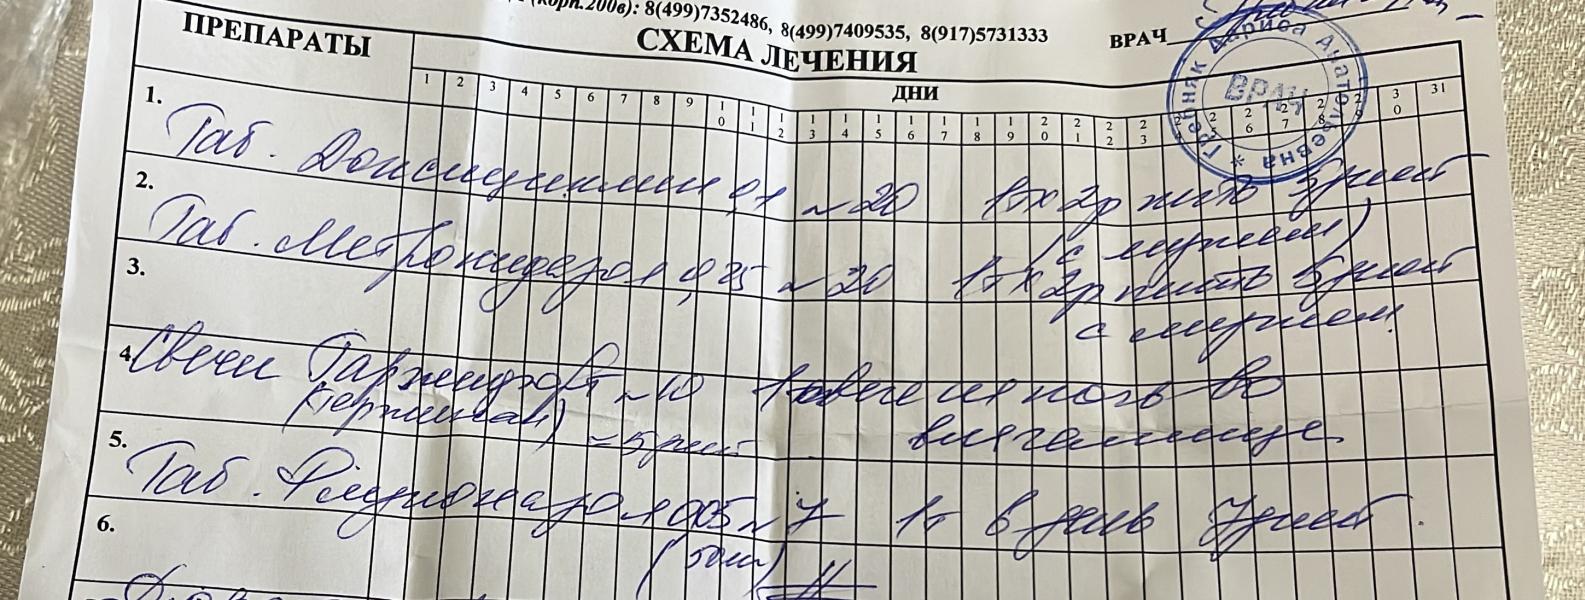 (корп.200в): 8(499)7352486, 8(499)7409535, 8(917)5731333
ВРАЧ
ПРЕПАРАТЫ
СХЕМА ЛЕЧЕНИЯ
ДНИ
1 2 3 4 5 6 7 8 9 10 11 12 13 14 15 16 17 18 19 20 21 22 23 24 25 26 27 28 29 30 31
Лариса Анатольевна *
Врач
1.
Таб. Доксициклин 0,1 ~ 20 1т х 2р пить 7 дней
(с мужем)
2.
Таб. Метронидазол 0,25 ~ 20 1т х 2р пить 5 дней
с мужем
3.
4. Свечи ~ 10 1 свече на ночь во
(тержинан) ~ 5 дней влагалище
5.
Таб. Флуконазол 0,05 ~ 7 1т в день 7 дней.
(50мг)
6.